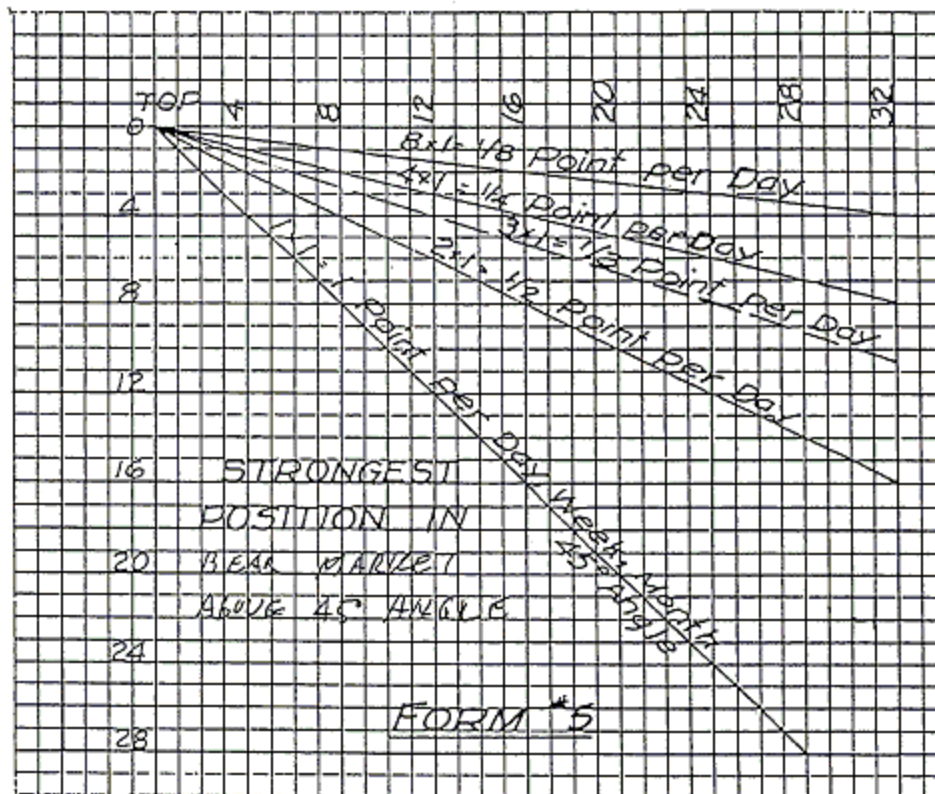 TOP 4 8 12 16 20 24 28 32
0
8x1= 1/8 Point per Day
4x1 = 1/4 Point per Day
3x1= 1/3 Point per Day
2x1= 1/2 Point per Day
1x1=1 Point per Day, Week, Month
45° Angle
4
8
12
16 STRONGEST
POSITION IN
20 BEAR MARKET
ABOVE 45 ANGLE
24
FORM #5
28